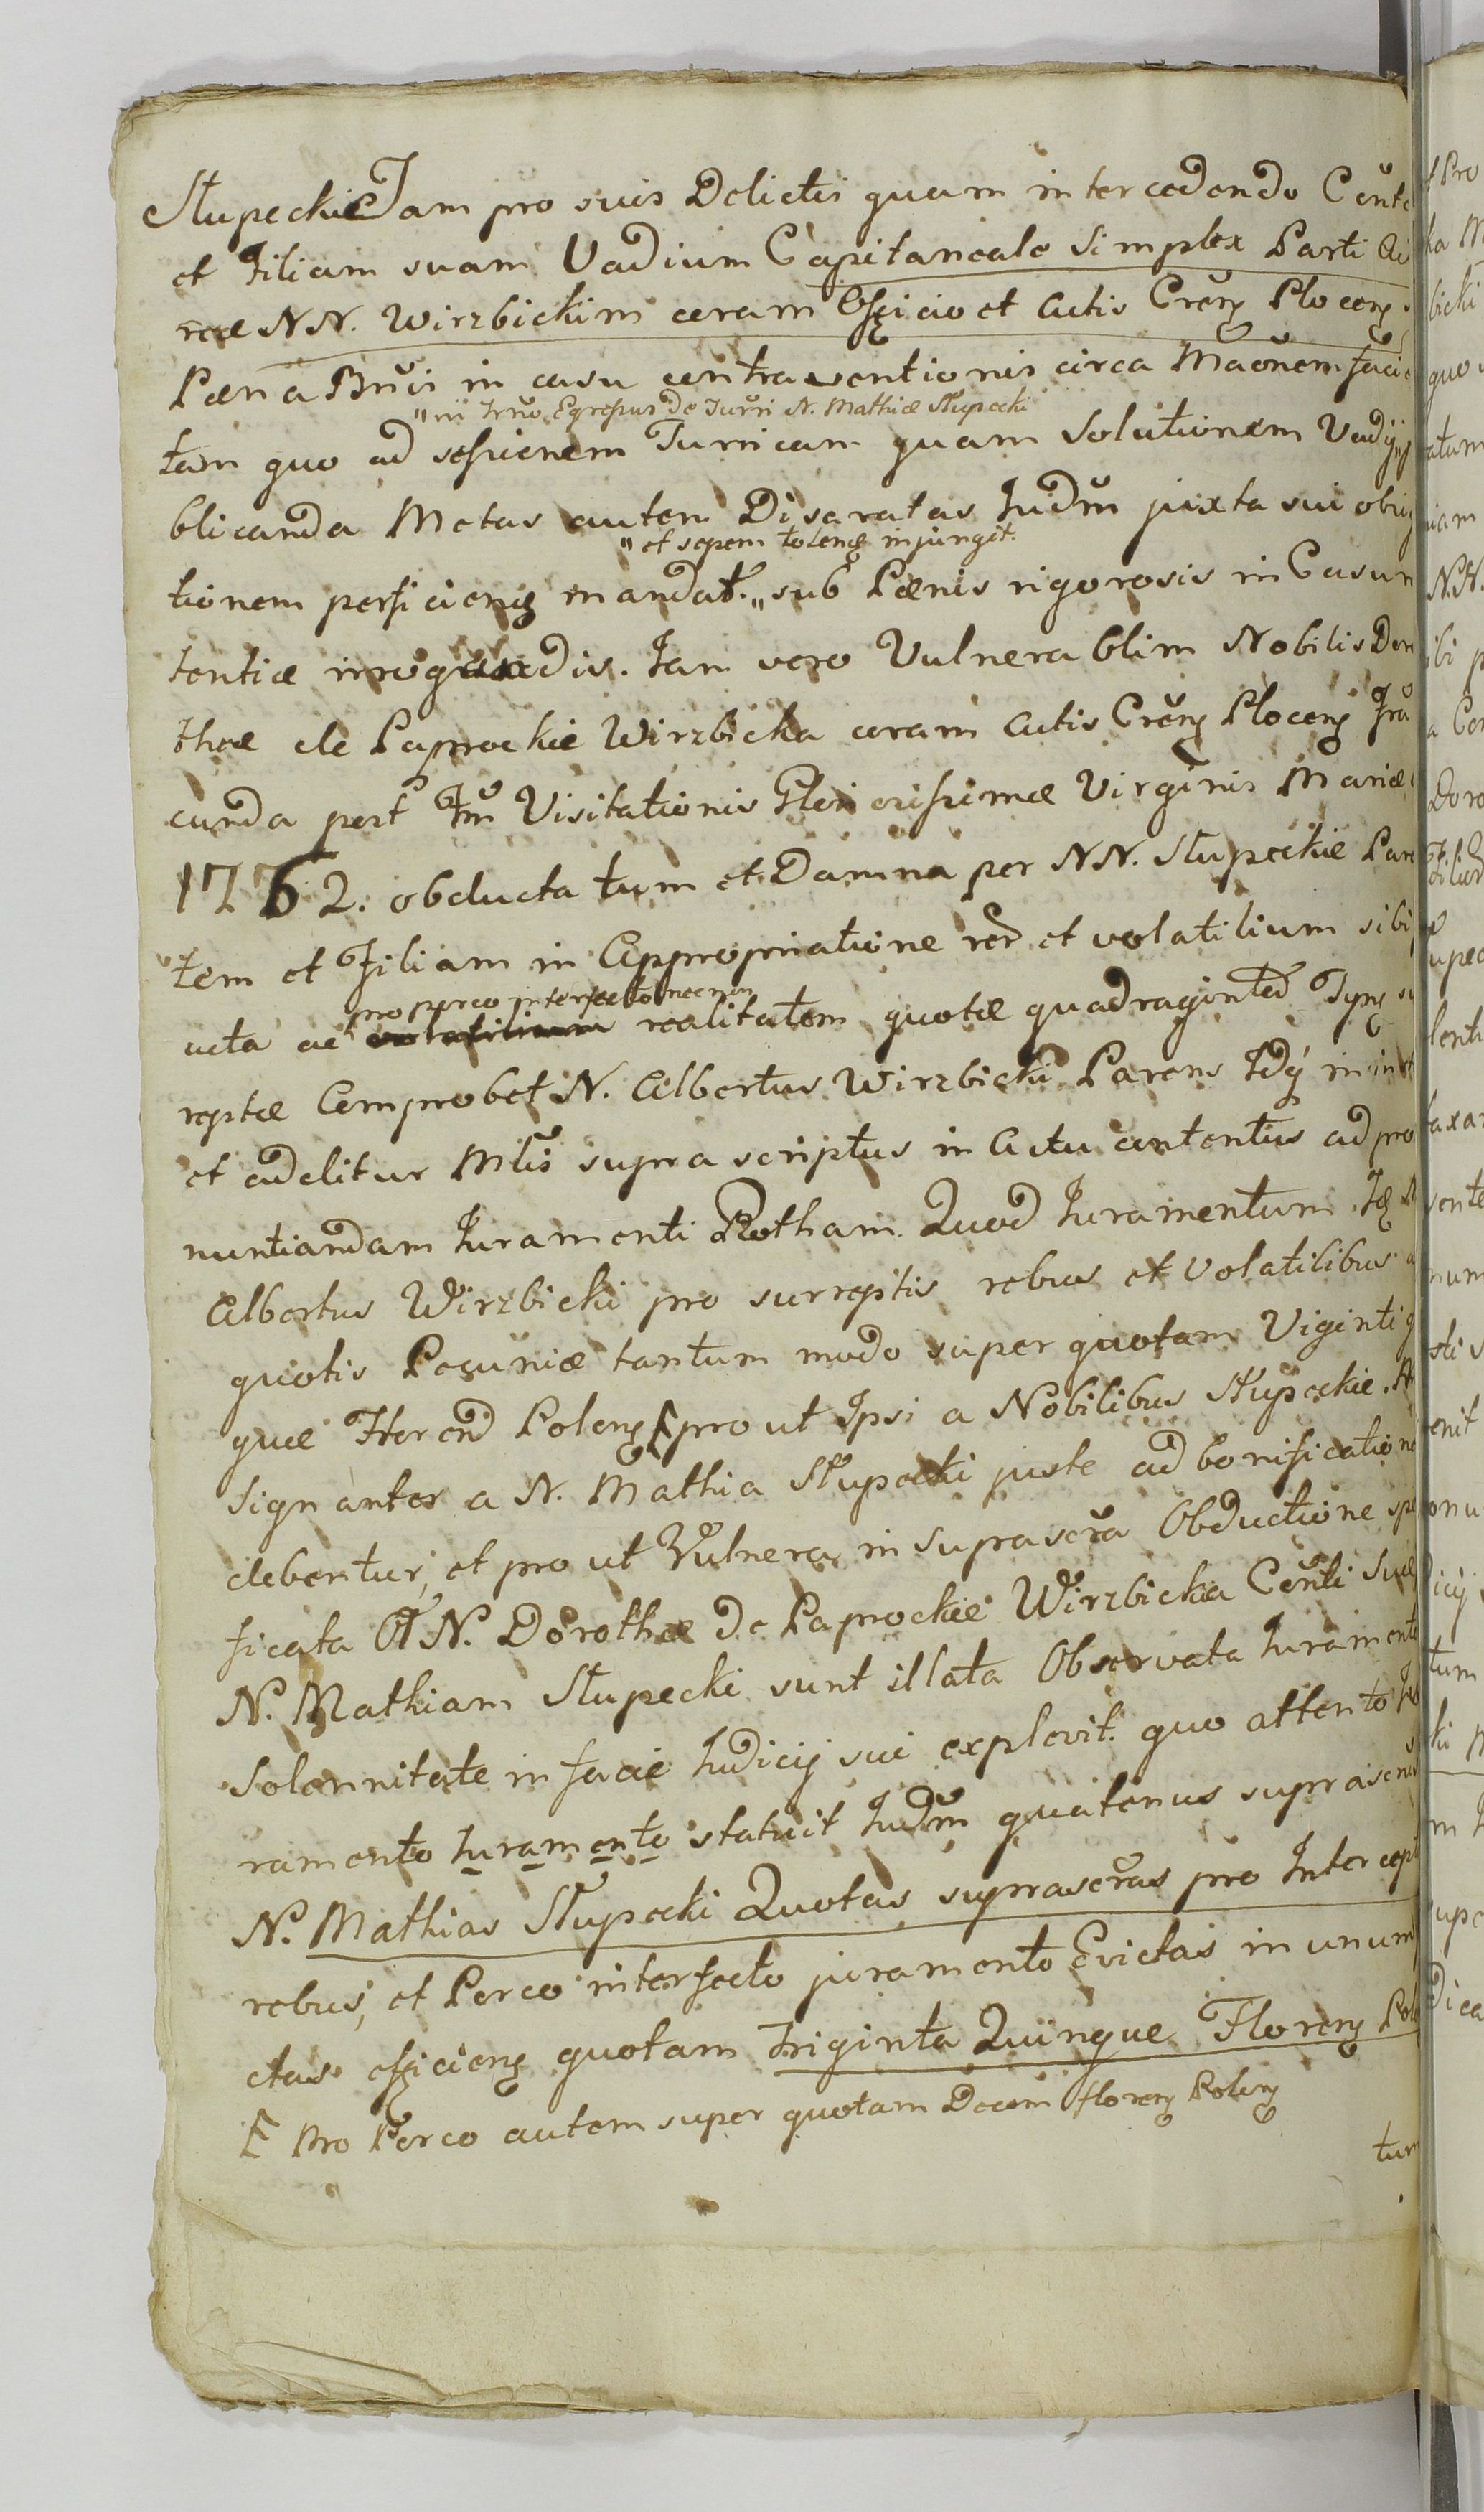 Słupeckie Tam pro suis Delictis quam intercedendo Conte
et Filiam suam Vadium Capitaneale Simplex Parti
reæ NN. Wirzbickim coram Officio et Actis Crens Plocens
Pæna Bnis in casu contraventionis circa Maonem faci
" in Irno Egressus de Turri N. Mathiæ Słupecki
tam quo ad sessionem Turricam quam Solutionem Vadij "
blicanda Metas autem Disaratas Iudm juxta sui
" et sepem tolens injungit.
tionem perficiens mandat. " sub Pænis rigorosis in Casum
tentiæ irrogandis. Iam vero Vulnera blim Nobilis Doro
theæ de Paprockie Wirzbicka coram Actis Crens Plocens Fra
cunda post Ftm Visitationis Gloriosissimæ Virginis Mariæ
1762. obducta tum et Damna per NN. Słupeckie Paren
tem et Filiam in Appropriatione rer et volatilium sibi
pro porco interfecto necnon
acta ac volatilium realitatem quotæ quadraginta Tynf
reptæ Comprobet N. Albertus Wirzbicki Parens Idq in
et additur Mtis supra scriptus in Actu contentus ad pro
nuntiandam Iuramenti Rotham. Quod Iuramentum Id
Albertus Wirzbicki pro surreptis rebus et Volatilibus
quotis Pecuniæ tantum modo super quotam Viginti
que Florend Polens prout Ipsi a Nobilibus Słupeckie
Signanter a N. Mathia Słupecki juste ad bonificatione
debentur, et pro ut Vulnera in suprascra Obductione spe
ficata N. Dorotheæ de Paprockie Wirzbicka Conti Suæ
N. Mathiam Słupecki sunt illata Observata Iuramento
Solennitate in facie Iudicij sui explevit. quo attento
ramento Iuramento statuit Iudm quatenus suprascri
N. Mathias Słupecki Quotas suprascras pro Intercept
rebus, et Porco interfecto juramento Evictas in unum
ctas efficiens quotam Triginta Quinque Florens Pol
Pro Porco autem super quotam Decem florens Polens
tum